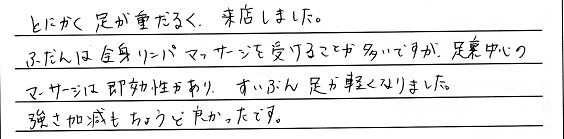 とにかく足が重だるく、来店しました。
ふだんは全身リンパマッサージを受けることが多いですが、足裏中心の
マッサージは即効性があり、ずいぶん足が軽くなりました。
強さ加減もちょうど良かったです。